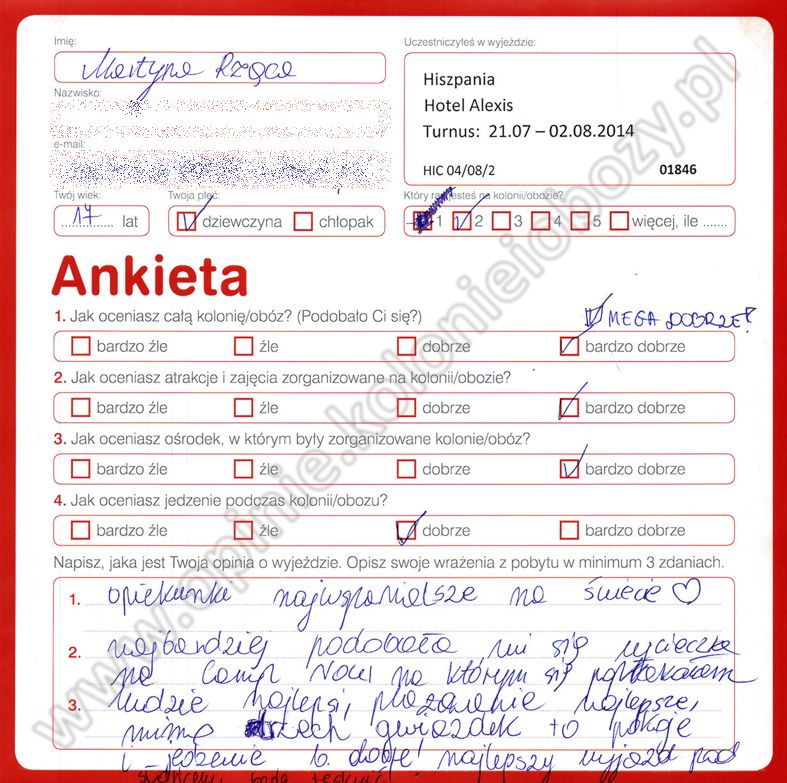 Imię:
Uczestniczyłeś w wyjeździe:
Martyna Rzące
Hiszpania
Hotel Alexis
Turnus: 21.07 – 02.08.2014
HIC 04/08/2 01846
Nazwisko:
e-mail:
Twój wiek: Twoja płeć: Który raz jesteś na kolonii/obozie?
17 lat dziewczyna chłopak 1 2 3 4 5 więcej, ile .......
Ankieta
1. Jak oceniasz całą kolonię/obóz? (Podobało Ci się?)
MEGA DOBRZE!
bardzo źle źle dobrze bardzo dobrze
2. Jak oceniasz atrakcje i zajęcia zorganizowane na kolonii/obozie?
bardzo źle źle dobrze bardzo dobrze
3. Jak oceniasz ośrodek, w którym były zorganizowane kolonie/obóz?
bardzo źle źle dobrze bardzo dobrze
4. Jak oceniasz jedzenie podczas kolonii/obozu?
bardzo źle źle dobrze bardzo dobrze
Napisz, jaka jest Twoja opinia o wyjeździe. Opisz swoje wrażenia z pobytu w minimum 3 zdaniach.
1. opiekunki najwspanialsze na świecie ♡
2. najbardziej podobała mi się wycieczka
na Camp Nou na którym się popłakałam
3. ludzie najlepsi, plażowanie najlepsze,
mimo trzech gwiazdek to pokoje
i jedzenie b. dobre! najlepszy wyjazd pod
słońcem, będę tęsknić!
www.opinie.kolonieiobozy.pl